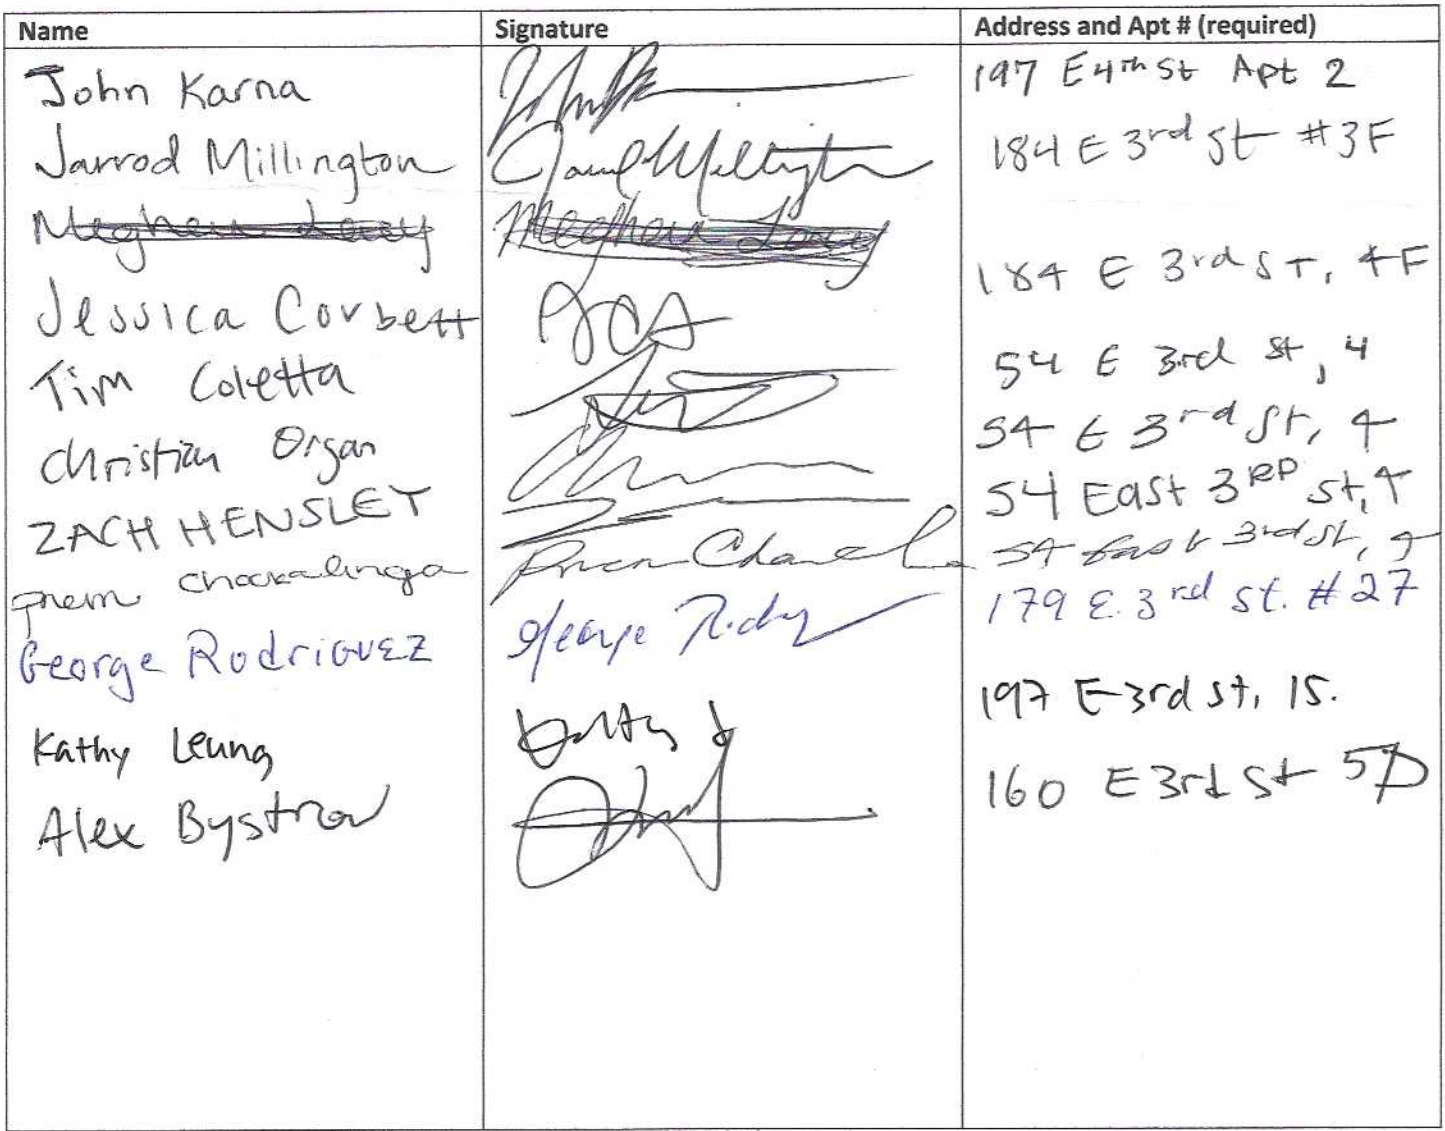 Name Signature Address and Apt # (required)
John Karna 197 E 4th St Apt 2
Jarrod Millington Jarrod Millington 184 E 3rd St #3F
Meghan
Jessica Corbett 184 E 3rd ST, 4F
Tim Coletta 54 E 3rd St, 4
Christian Organ 54 E 3rd St, 4
ZACH HENSLEY 54 East 3RD St, 4
prem chockalinga 54 East 3rd St, 4
George RodriGUEZ George 179 E. 3rd St. #27
Kathy Leung 197 E 3rd St, 15.
Alex Bystrov 160 E 3rd St 5D